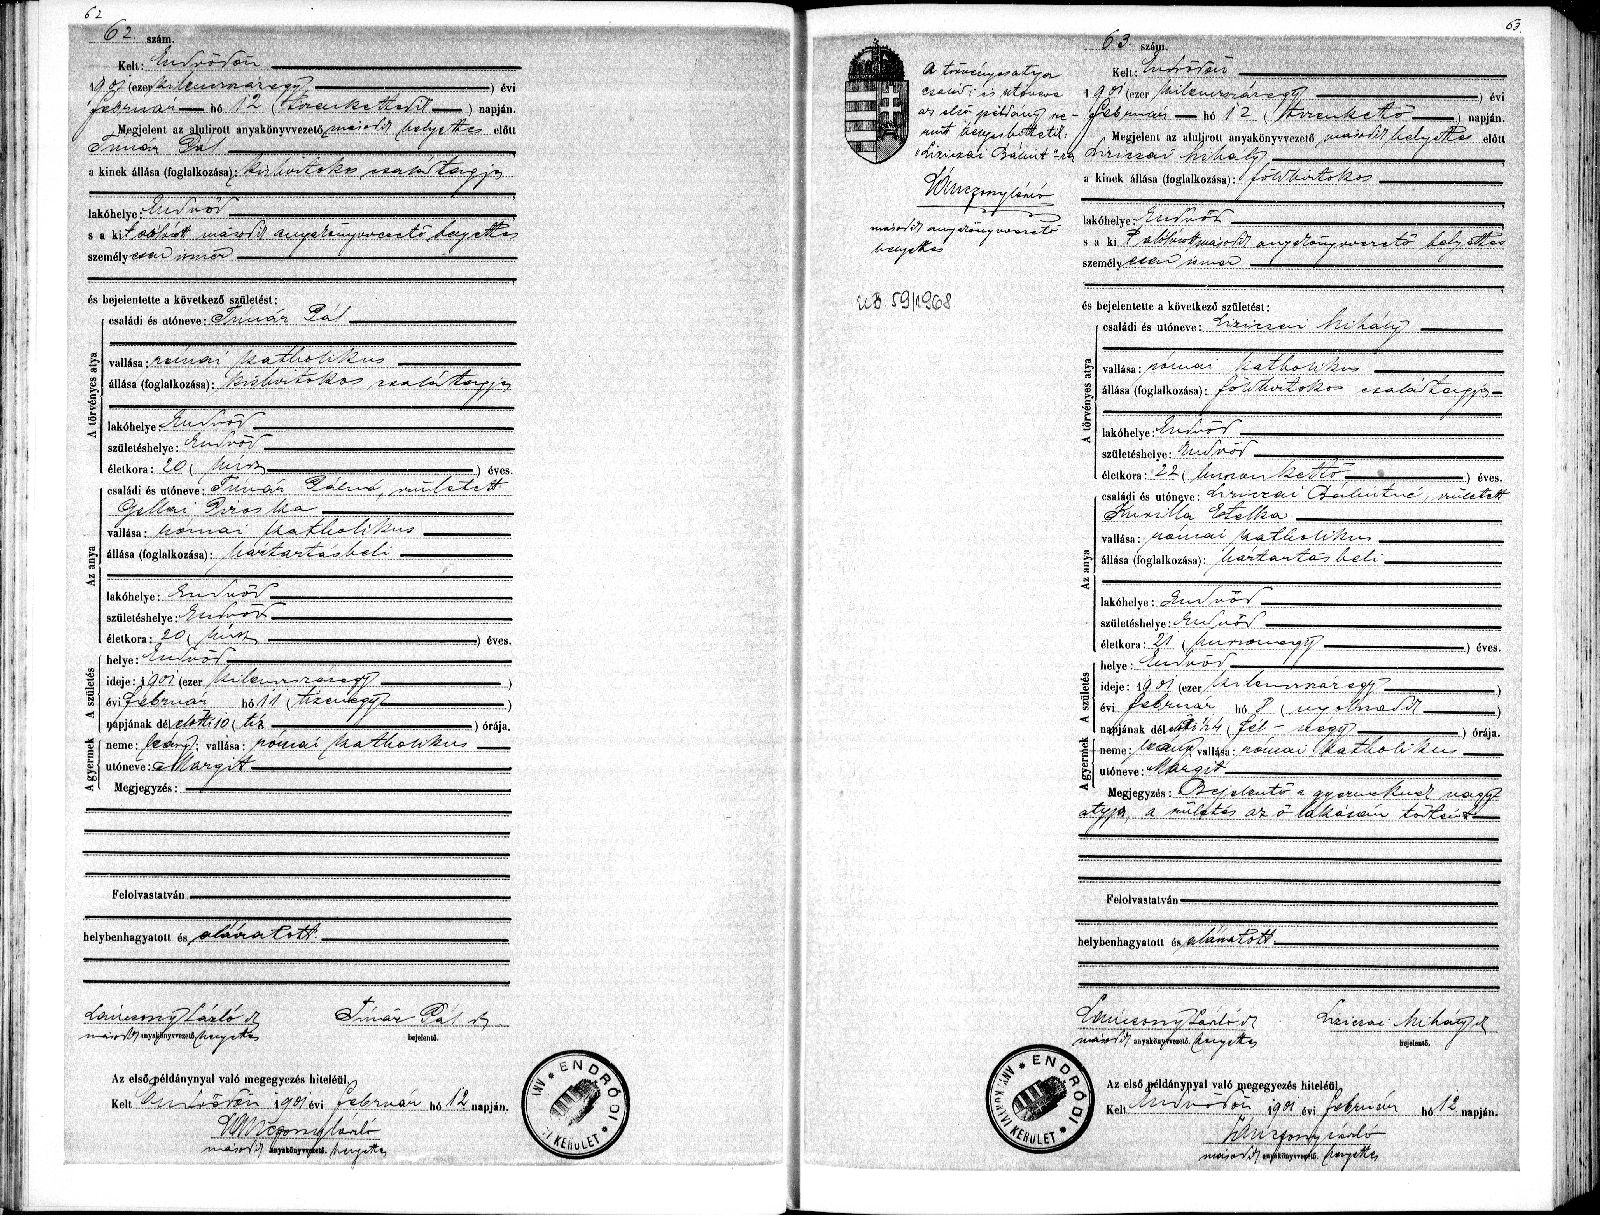 62
62 szám.
Kelt: Endrődön
1901 (ezer kilenczszázegy) évi
február hó 12 (tizenkettedik) napján.
Megjelent az alulirott anyakönyvvezető második helyettes előtt
Timár Pál
a kinek állása (foglalkozása): kisbirtokos családtagja
lakóhelye: Endrőd
s a kit aláirott második anyakönyvvezető helyettes
személyesen ismer
és bejelentette a következő születést:
A törvényes atya
családi és utóneve: Timár Pál
vallása: római katholikus
állása (foglalkozása): kisbirtokos családtagja
lakóhelye: Endrőd
születéshelye: Endrőd
életkora: 20 (húsz) éves.
Az anya
családi és utóneve: Timár Pálné, született
Gellai Piroska
vallása: római katholikus
állása (foglalkozása): háztartásbeli
lakóhelye: Endrőd
születéshelye: Endrőd
életkora: 20 (húsz) éves.
A születés
helye: Endrőd
ideje: 1901 (ezer kilenczszázegy)
évi február hó 11 (tizenegy)
napjának dél előtti 10 (tíz) órája.
A gyermek
neme: leány; vallása: római katholikus
utóneve: Margit
Megjegyzés:
Felolvastatván
helybenhagyatott és aláiratott
Lánczony László sk Timár Pál sk
második anyakönyvvezető. helyettes bejelentő.
Az első példánynyal való megegyezés hiteléül.
Kelt Endrődön 1901 évi február hó 12 napján.
Lánczony László
második anyakönyvvezető. helyettes
ENDRŐDI ANYAKÖNYVI KERÜLET
63
A törvényes atya
családi és utóneve
az első példány sze-
rint
"Liziczai Bálint"ra
Lánczony László
második anyakönyvvezető
helyettes
59/1968
63 szám.
Kelt: Endrődön
1901 (ezer kilenczszázegy) évi
február hó 12 (tizenkettő) napján.
Megjelent az alulirott anyakönyvvezető második helyettes előtt
Liziczai Mihály
a kinek állása (foglalkozása): földbirtokos
lakóhelye: Endrőd
s a kit aláirott második anyakönyvvezető helyettes
személyesen ismer
és bejelentette a következő születést:
A törvényes atya
családi és utóneve: Liziczai Mihály
vallása: római katholikus
állása (foglalkozása): földbirtokos családtagja
lakóhelye: Endrőd
születéshelye: Endrőd
életkora: 22 (huszonkettő) éves.
Az anya
családi és utóneve: Liziczai Bálintné, született
Kurilla Etelka
vallása: római katholikus
állása (foglalkozása): háztartásbeli
lakóhelye: Endrőd
születéshelye: Endrőd
életkora: 21 (huszonegy) éves.
A születés
helye: Endrőd
ideje: 1901 (ezer kilenczszázegy)
évi február hó 8 (nyolczadik)
napjának dél (fél négy) órája.
A gyermek
neme: leány; vallása: római katholikus
utóneve: Margit
Megjegyzés: Bejelentő a gyermeknek nagy
atyja, a születés az ő lakásán történt
Felolvastatván
helybenhagyatott és aláiratott
Lánczony László sk Liziczai Mihály sk
második anyakönyvvezető. helyettes bejelentő.
Az első példánynyal való megegyezés hiteléül.
Kelt Endrődön 1901 évi február hó 12 napján.
Lánczony László
második anyakönyvvezető. helyettes
ENDRŐDI ANYAKÖNYVI KERÜLET